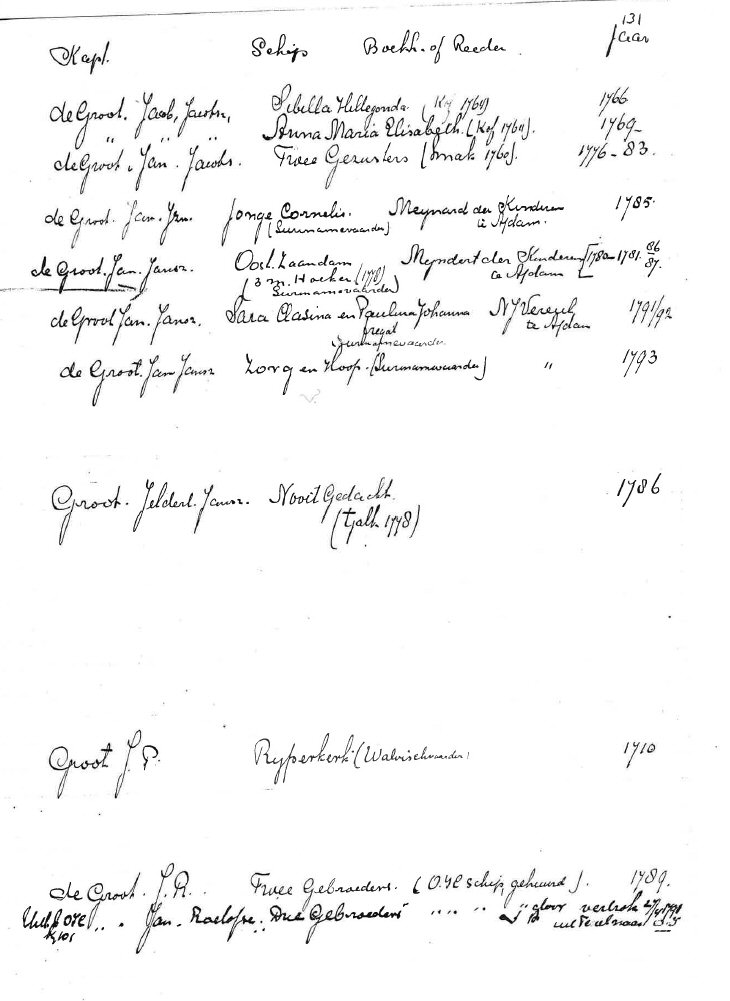 131
Kapt. Schip Boekh. of Reeder Jaar
de Groot. Jacob, Jacobsz, Sibilla Hillegonda (Kof 1764) 1766
" " " Anna Maria Elisabeth. (Kof 1761). 1769-
de Groot. Jan. Jacobs. Twee Gezusters (Smak 1760). 1776-83.
de Groot. Jan. Jzn. Jonge Cornelis. Meynard der Kinderen 1785.
(Surinamevaarder) te A'dam.
de Groot. Jan. Jansz. Oost. Zaandam Myndert der Kinderen [1780-1781. 86
(3 m. Hoeker (1778) te A'dam 87.
Surinamevaarder)
de Groot Jan. Jansz. Sara Clasina en Paulina Johanna NJ 1791/92
fregat te A'dam
Surinamevaarder
de Groot. Jan Jansz Zorg en Hoop. (Surinamevaarder) " 1793
Groot. Jelderl. Jansz. Nooit Gedacht. 1786
(tjalk 1778)
Groot J. P. Ryperkerk (Walvischvaarder) 1710
de Groot. J. R. Twee Gebroeders. (O.I.C schip, gehuurd). 1789.
" " Jan. Roelofse. Drie Gebroeders " " " " vertrok
uit Texel naar